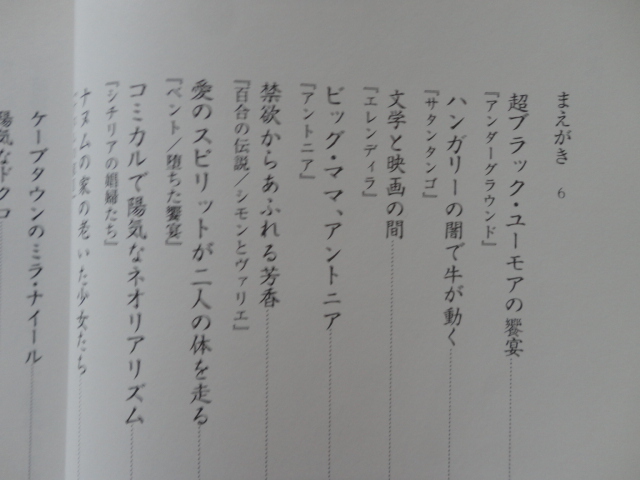 まえがき 6
超ブラック・ユーモアの饗宴
『アンダーグラウンド』
ハンガリーの闇で牛が動く
『サタンタンゴ』
文学と映画の間
『エレンディラ』
ビッグ・ママ、アントニア
『アントニア』
禁欲からあふれる芳香
『百合の伝説／シモンとヴァリエ』
愛のスピリットが二人の体を走る
『ベント／堕ちた饗宴』
コミカルで陽気なネオリアリズム
『シチリアの娼婦たち』
ナヌムの家の老いた少女たち
ケープタウンのミラ・ナイール
陽気なドクロ